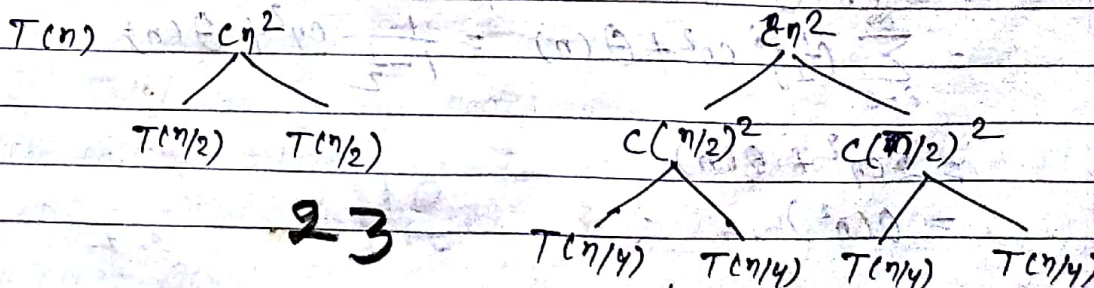 T(n) Cn² Cn²
T(n/2) T(n/2) C(n/2)² C(n/2)²
23
T(n/4) T(n/4) T(n/4) T(n/4)